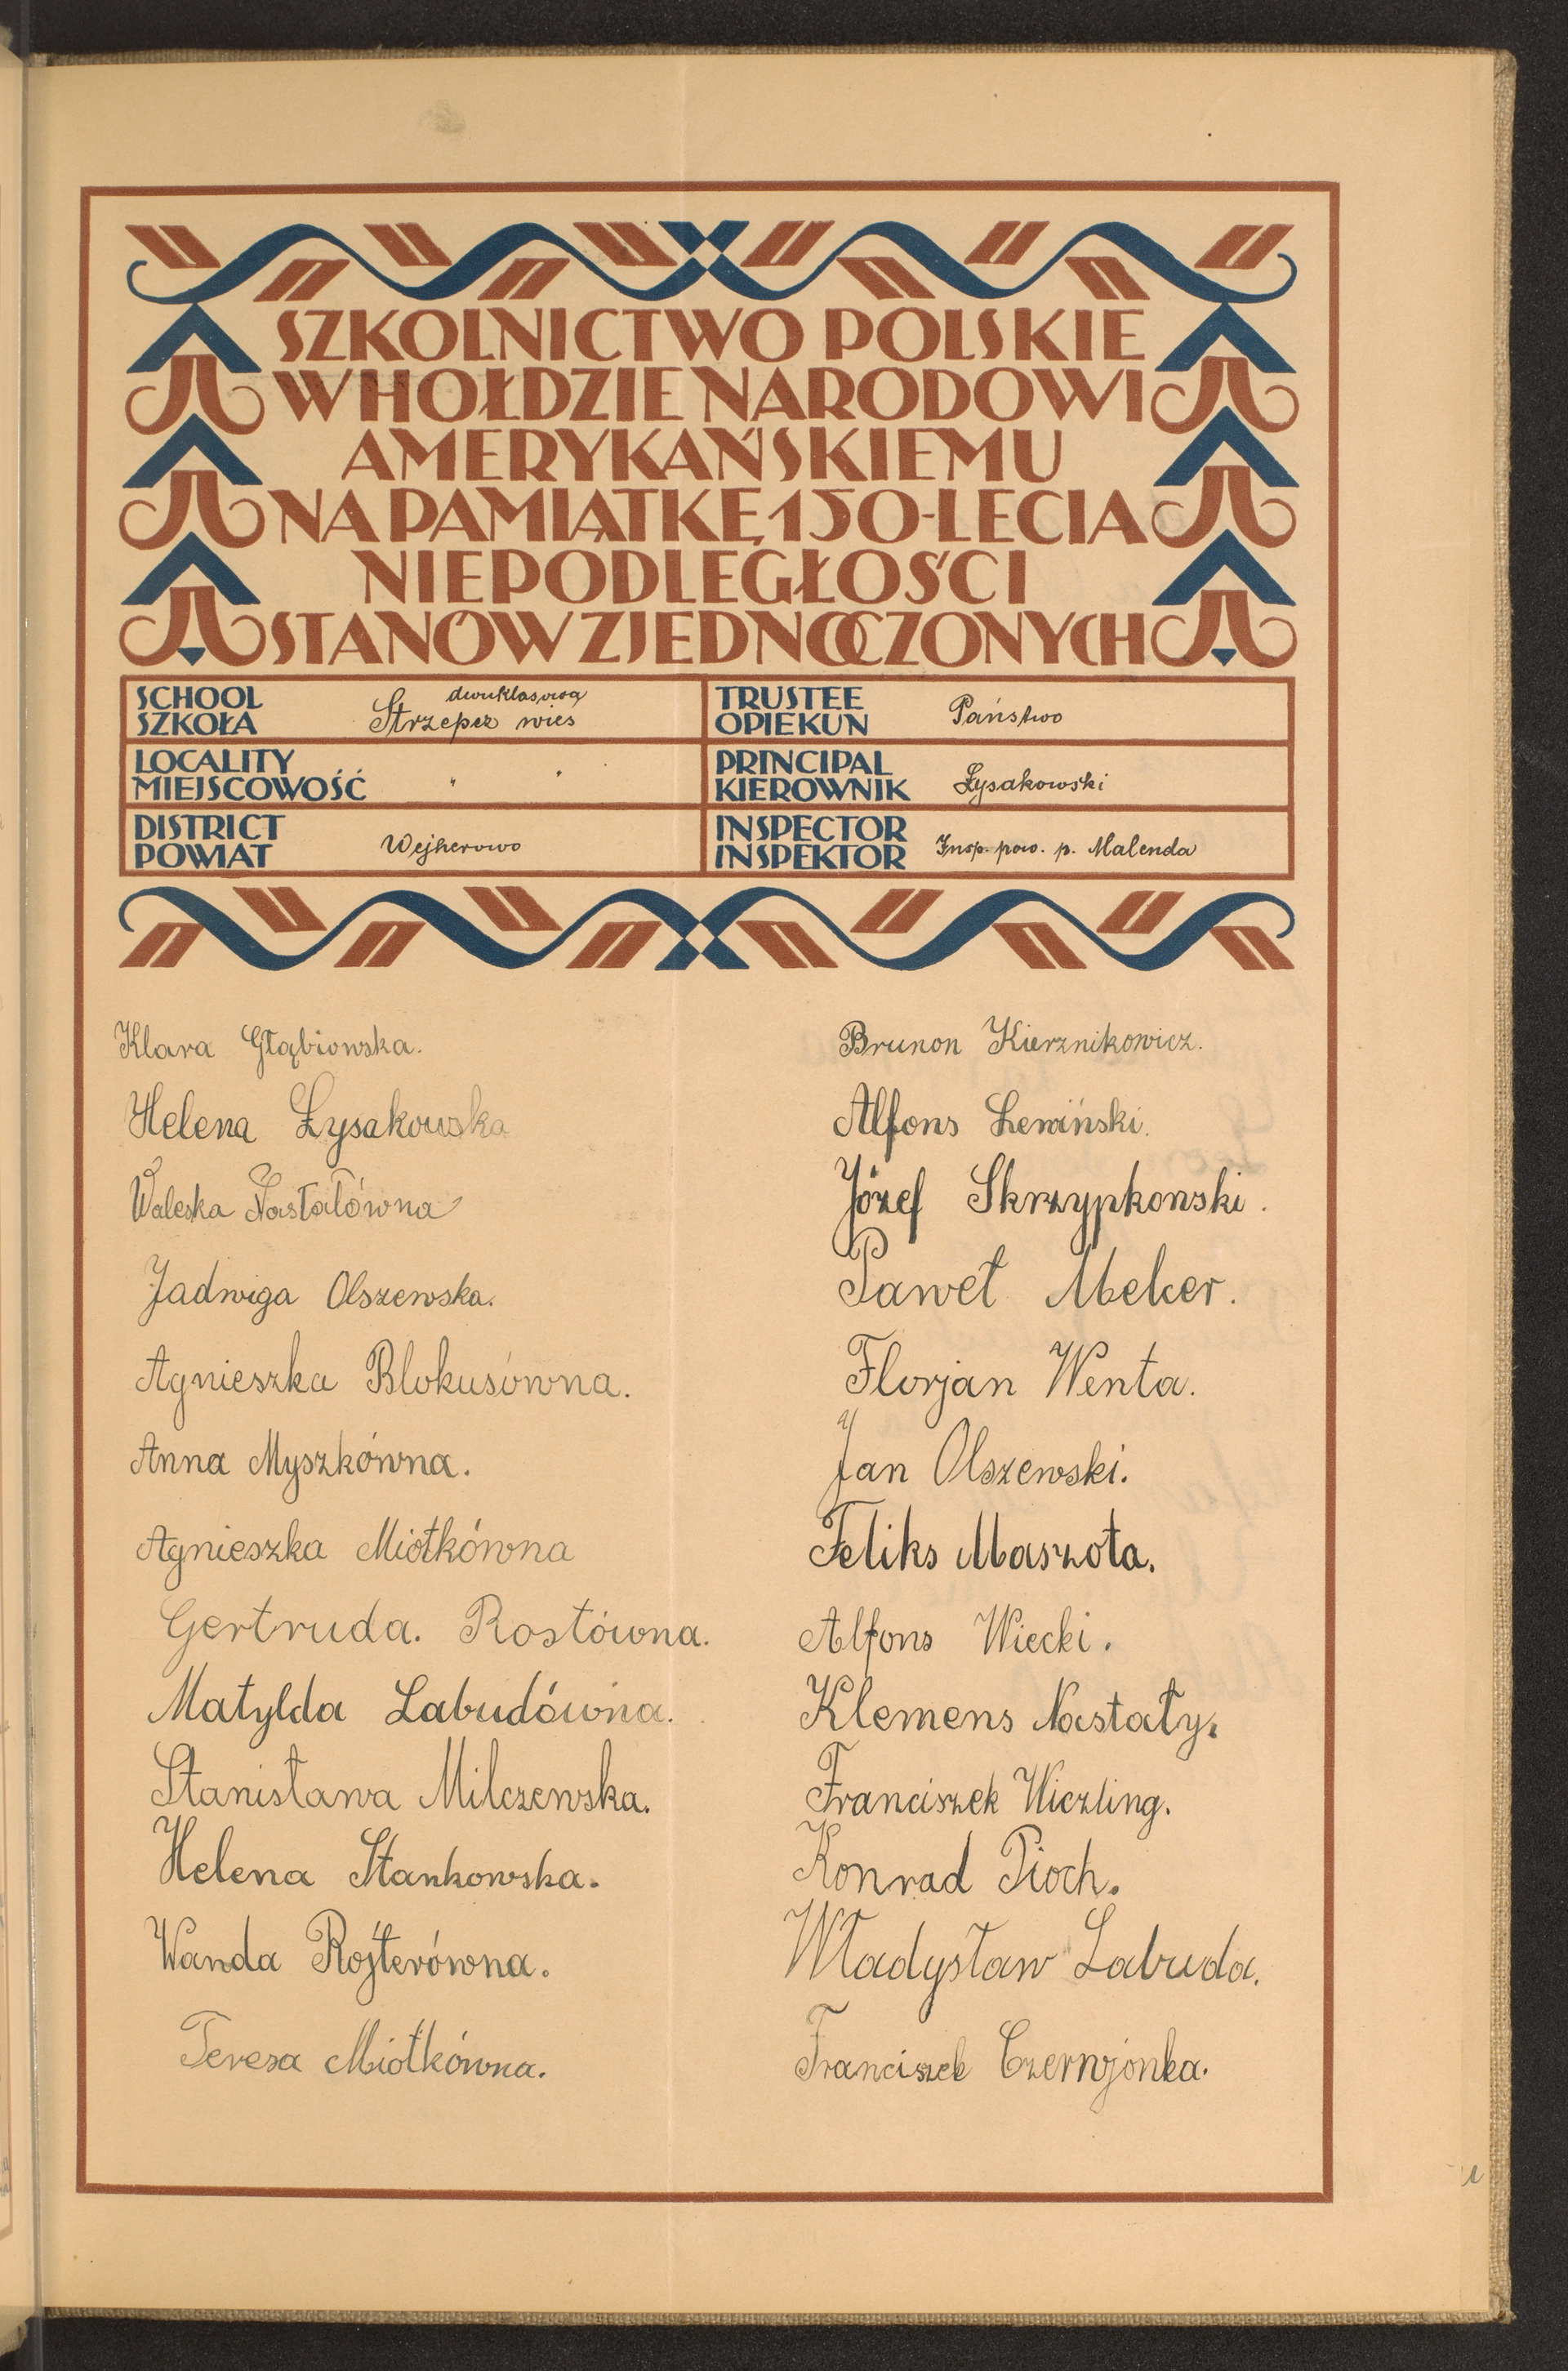 SZKOLNICTWO POLSKIE
W HOŁDZIE NARODOWI
AMERYKAŃSKIEMU
NA PAMIĄTKĘ 150-LECIA
NIEPODLEGŁOŚCI
STANÓW ZJEDNOCZONYCH
SCHOOL
SZKOŁA
dwuklasowa
Strzepcz wieś
TRUSTEE
OPIEKUN
Państwo
LOCALITY
MIEJSCOWOŚĆ
" "
PRINCIPAL
KIEROWNIK
Łysakowski
DISTRICT
POWIAT
Wejherowo
INSPECTOR
INSPEKTOR
Insp. pow. p. Malenda
Klara Głąbiowska.
Helena Łysakowska
Waleska Nastałówna
Jadwiga Olszewska.
Agnieszka Blokusówna.
Anna Myszkówna.
Agnieszka Miotkówna
Gertruda. Rostówna.
Matylda Labudówna.
Stanisława Milczewska.
Helena Stankowska.
Wanda Rojterówna.
Teresa Miotkówna.
Brunon Kierznikowicz.
Alfons Lewiński.
Józef Skrzypkowski.
Paweł Melcer.
Florjan Wenta.
Jan Olszewski.
Feliks Maszota.
Alfons Wiecki.
Klemens Nastały.
Franciszek Wiczling.
Konrad Pioch.
Władysław Labuda.
Franciszek Czerwjonka.